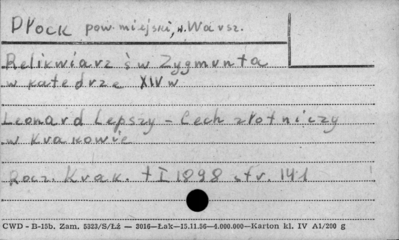 Płock pow. miejski, w. Warsz.
Relikwiarz św Zygmunta
w katedrze XIV w
Leonard Lepszy - Cech złotniczy
w Krakowie
Rocz. Krak. t I 1898 str. 141
CWD - B-15b. Zam. 5323/S/Łż — 3016—Łak—15.11.56—4.000.000—Karton kl. IV A1/200 g